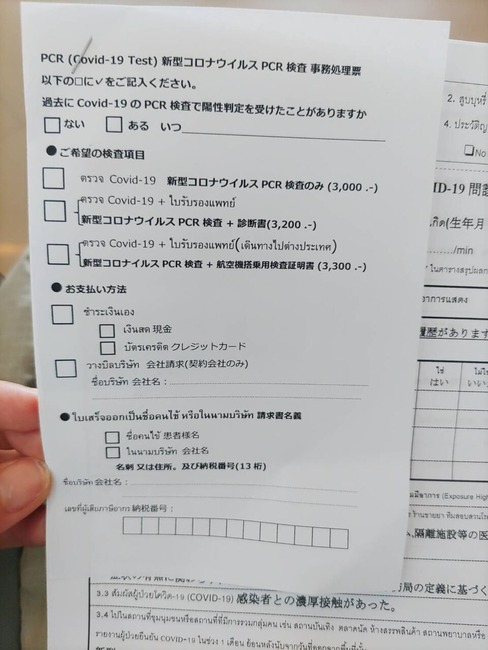 PCR (Covid-19 Test) 新型コロナウイルス PCR 検査 事務処理票
以下の□に✓をご記入ください。
過去に Covid-19 の PCR 検査で陽性判定を受けたことがありますか
ない ある いつ
●ご希望の検査項目
ตรวจ Covid-19 新型コロナウイルス PCR 検査のみ (3,000 .-)
ตรวจ Covid-19 + ใบรับรองแพทย์
新型コロナウイルス PCR 検査 + 診断書(3,200 .-)
ตรวจ Covid-19 + ใบรับรองแพทย์(เดินทางไปต่างประเทศ)
新型コロナイルス PCR 検査 + 航空機搭乗用検査証明書 (3,300 .-)
●お支払い方法
ชำระเงินเอง
เงินสด 現金
บัตรเครดิต クレジットカード
วางบิลบริษัท 会社請求(契約会社のみ)
ชื่อบริษัท 会社名：
●ใบเสร็จออกเป็นชื่อคนไข้ หรือในนามบริษัท 請求書名義
ชื่อคนไข้ 患者様名
ในนามบริษัท 会社名
名刺 又は住所。及び納税番号(13 桁)
ชื่อบริษัท 会社名：
เลขที่ผู้เสียภาษีอากร 納税番号：
2. สูบบุหรี่
4. ประวัติ
No
ID-19 問
(生年月
/min
อาการแสดง
履歴があります
ใช่
はい
(Exposure High
隔離施設等の医
局の定義に基づく
3.3 สัมผัสผู้ป่วยโควิด-19 (COVID-19) 感染者との濃厚接触があった。
3.4 ไปในสถานที่ชุมนุมชนหรือสถานที่ที่มีการรวมกลุ่มคน เช่น สถานบันเทิง ตลาดนัด ห้างสรรพสินค้า สถานพยาบาลหรือ
รายงานผู้ป่วยยืนยัน COVID-19 ในช่วง 1 เดือน